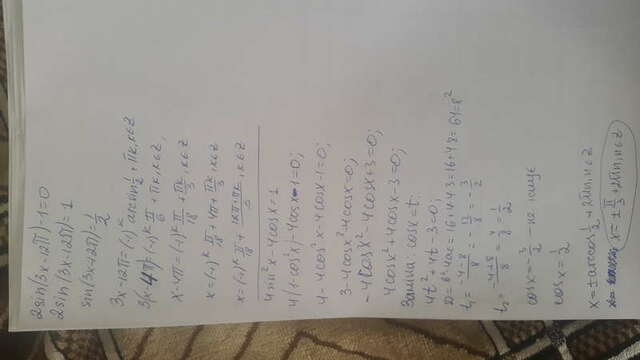 2sin(3x-12π)-1=0
2sin(3x-12π)=1
sin(3x-12π)=1/2
3x-12π=(-1)^k arcsin 1/2 + πk, k∈Z
π/6 + πk, k∈Z
x-4π=(-1)^k π/18 + πk/3, k∈Z
x=(-1)^k π/18 + 4π + πk/3, k∈Z
x=(-1)^k π/18 + , k∈Z
4sin²x-4cosx=1
4(1-cos²x)-4cosx-1=0;
4-4cos²x-4cosx-1=0;
3-4cosx²-4cosx=0;
-4cosx²-4cosx+3=0;
4cosx²+4cosx-3=0;
Замина cosx=t;
4t²+4t-3=0;
D=b²-4ac=16+4·4·3=16+48=64=8²
t₁=(-4-8)/8=-12/8=-3/2
t₂=(-4+8)/8=4/8=1/2
cosx=-3/2 -не
cosx=1/2
x=±arccos 1/2+2πn, n∈Z
x=±π/3+2πn, n∈Z